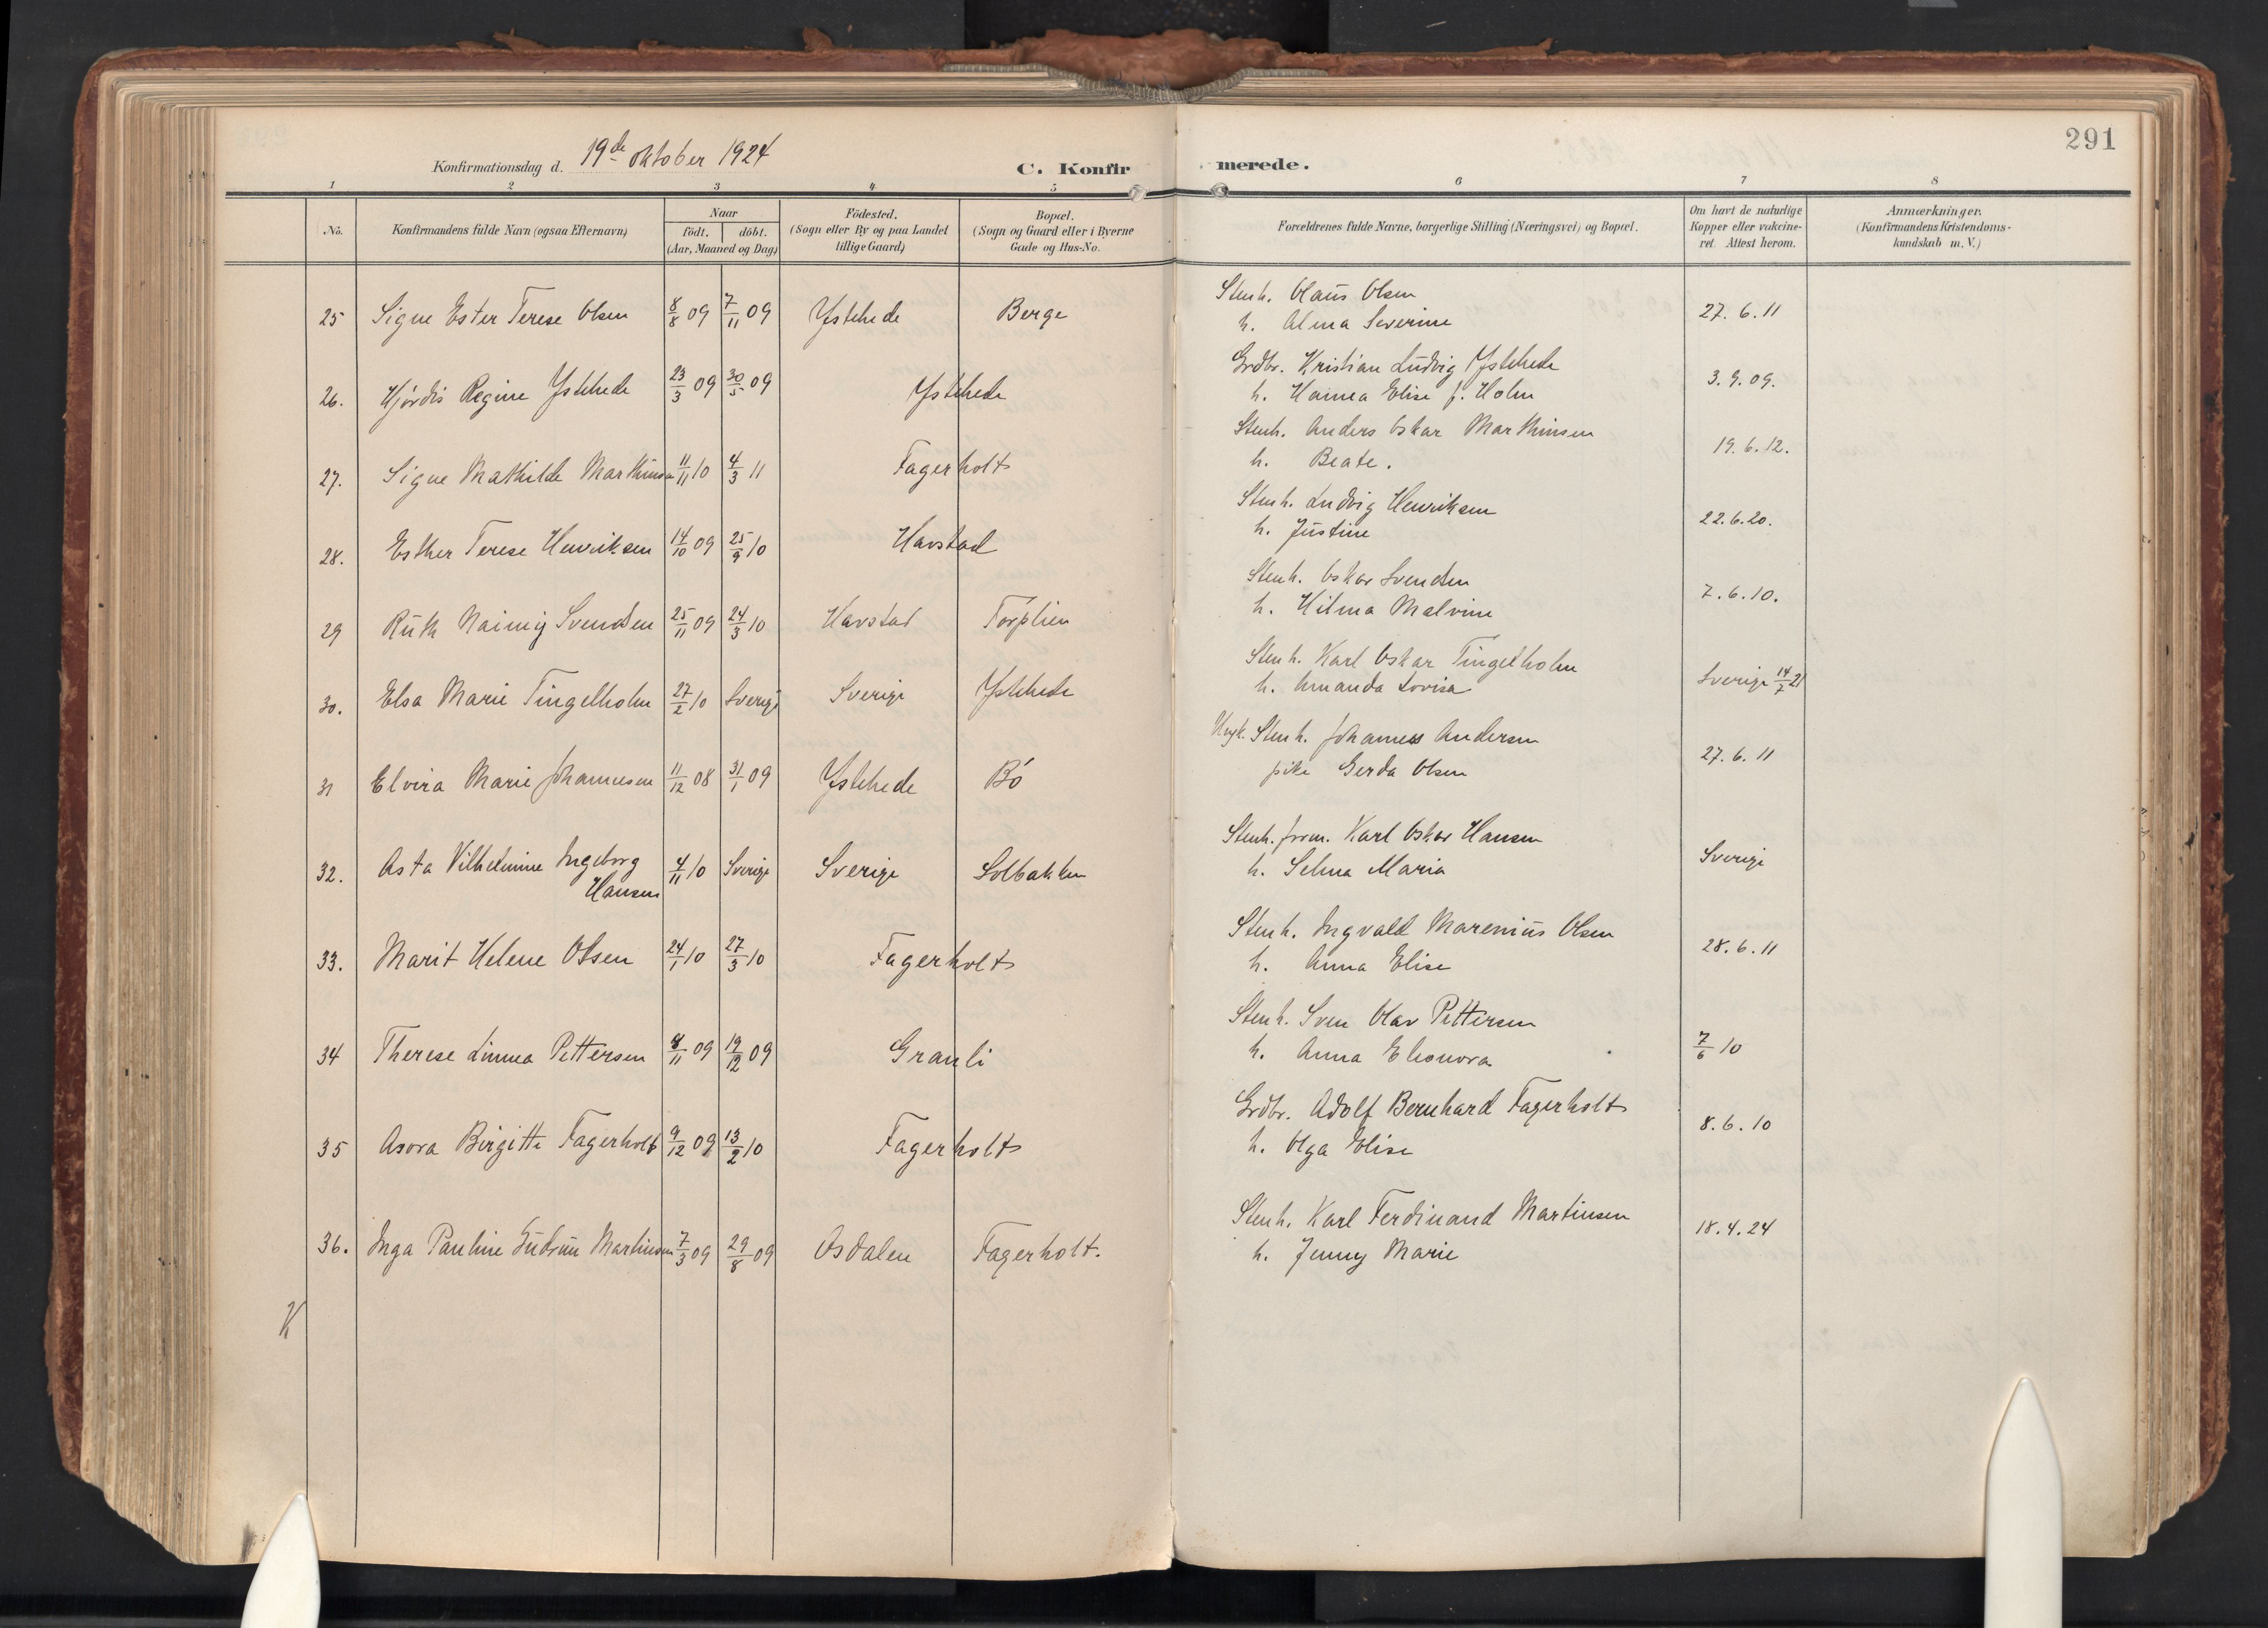 291
Konfirmationsdag d. 19de oktober 1924
C. Konfir merede.
1 2 3 4 5 6 7 8
No.
Konfirmandens fulde Navn (ogsaa Efternavn)
Naar
födt. döbt.
(Aar, Maaned og Dag)
Födested.
(Sogn eller By og paa Landet
tillige Gaard)
Bopæl.
(Sogn og Gaard eller i Byerne
Gade og Hus-No.
Forældrenes fulde Navne, borgerlige Stilling (Næringsvei) og Bopæl.
Om havt de naturlige
Kopper eller vakcine-
ret. Attest herom.
Anmærkninger.
(Konfirmandens Kristendoms-
kundskab m. V.)
25 Signe Ester Terese Olsen 8/8 09 7/11 09 Ystehede Berge
Stenh. Olaus Olsen
h. Alma Severine
27.6.11
26. Hjördis Regine Ystehede 23/3 09 30/5 09 Ystehede
Grdbr. Kristian Ludvig Ystehede
h. Hanna Elise f. Holm
3.9.09.
27. Signe Mathilde Marthinsen 11/11 10 4/3 11 Fagerholt
Stenh. Anders Oskar Marthinsen
h. Beate.
19.6.12.
28. Esther Terese Henriksen 14/10 09 25/9 10 Havstad
Stenh. Ludvig Henriksen
h. Justine
22.6.20.
29 Ruth Svendsen 25/11 09 24/3 10 Havstad Torplien
Stenh. Oskar Svendsen
h. Hilma Malvine
7.6.10.
30. Elsa Marie Tingelholm 27/2 10 Sverige Sverige Ystehede
Stenh. Karl Oskar Tingelholm
h. Amanda Lovisa
Sverige 14/7 21
31 Elvira Marie Johannesen 11/12 08 31/1 09 Ystehede Bö
Ungk. Stenh. Johannes Andersen
pike Gerda Olsen
27.6.11
32. Asta Vilhelmine Ingeborg
Hansen 4/11 10 Sverige Sverige Solbakken
Stenh. form. Karl Oskar Hansen
h. Selma Maria
Sverige
33. Marit Helene Olsen 24/1 10 27/3 10 Fagerholt
Stenh. Ingvald Marenius Olsen
h. Anna Elise
28.6.11
34 Therese Linnea Pettersen 8/11 09 19/12 09 Granli
Stenh. Sven Olav Pettersen
h. Anna Eleonora
7/6 10
35 Asora Birgitte Fagerholt 9/12 09 13/2 10 Fagerholt
Grdbr. Adolf Bernhard Fagerholt
h. Olga Elise
8.6.10
36. Inga Pauline Gudrun Martinsen 7/3 09 29/8 09 Osdalen Fagerholt.
Stenh. Karl Ferdinand Martinsen
h. Jenny Marie
18.4.24
K